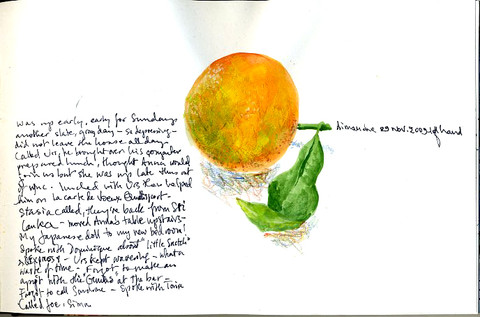 was up early, early for Sunday
another slate, gray day - so depressing -
did not leave the house all day.
Called Urs, he brought over his computer
prepared lunch, thought Anna would
join us but she was up late thus at
lunched with Urs then helped
him on la carte de
Stasia called, they're back from Sri
Lanka - moved Anda's table upstairs -
My Japanese doll to my new bedroom!
Spoke with Dominique about "little sketch"
Express? - Urs kept wavering - what a
waste of time - Forgot to make an
apt with the "Genius" at the bar -
Forgot to call Sandrine - Spoke with
Called Joe, Sima
dimanche 29 nov. 2009